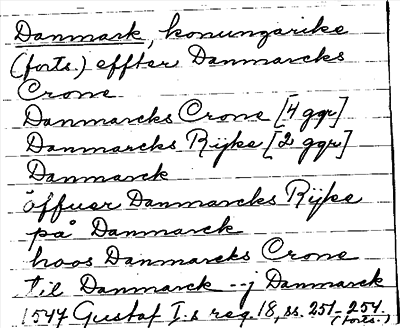 Danmark, konungarike
(forts.) effter Danmarcks
Crone
Danmarcks Crone [4 ggr]
Danmarcks Rijke [2 ggr]
Danmarck
öffuer Danmarcks Rijke
på Danmarck
hoos Danmarcks Crone
til Danmarck -- j Danmarck
1547 Gustaf I:s reg 18, ss. 251-254.
(forts.)